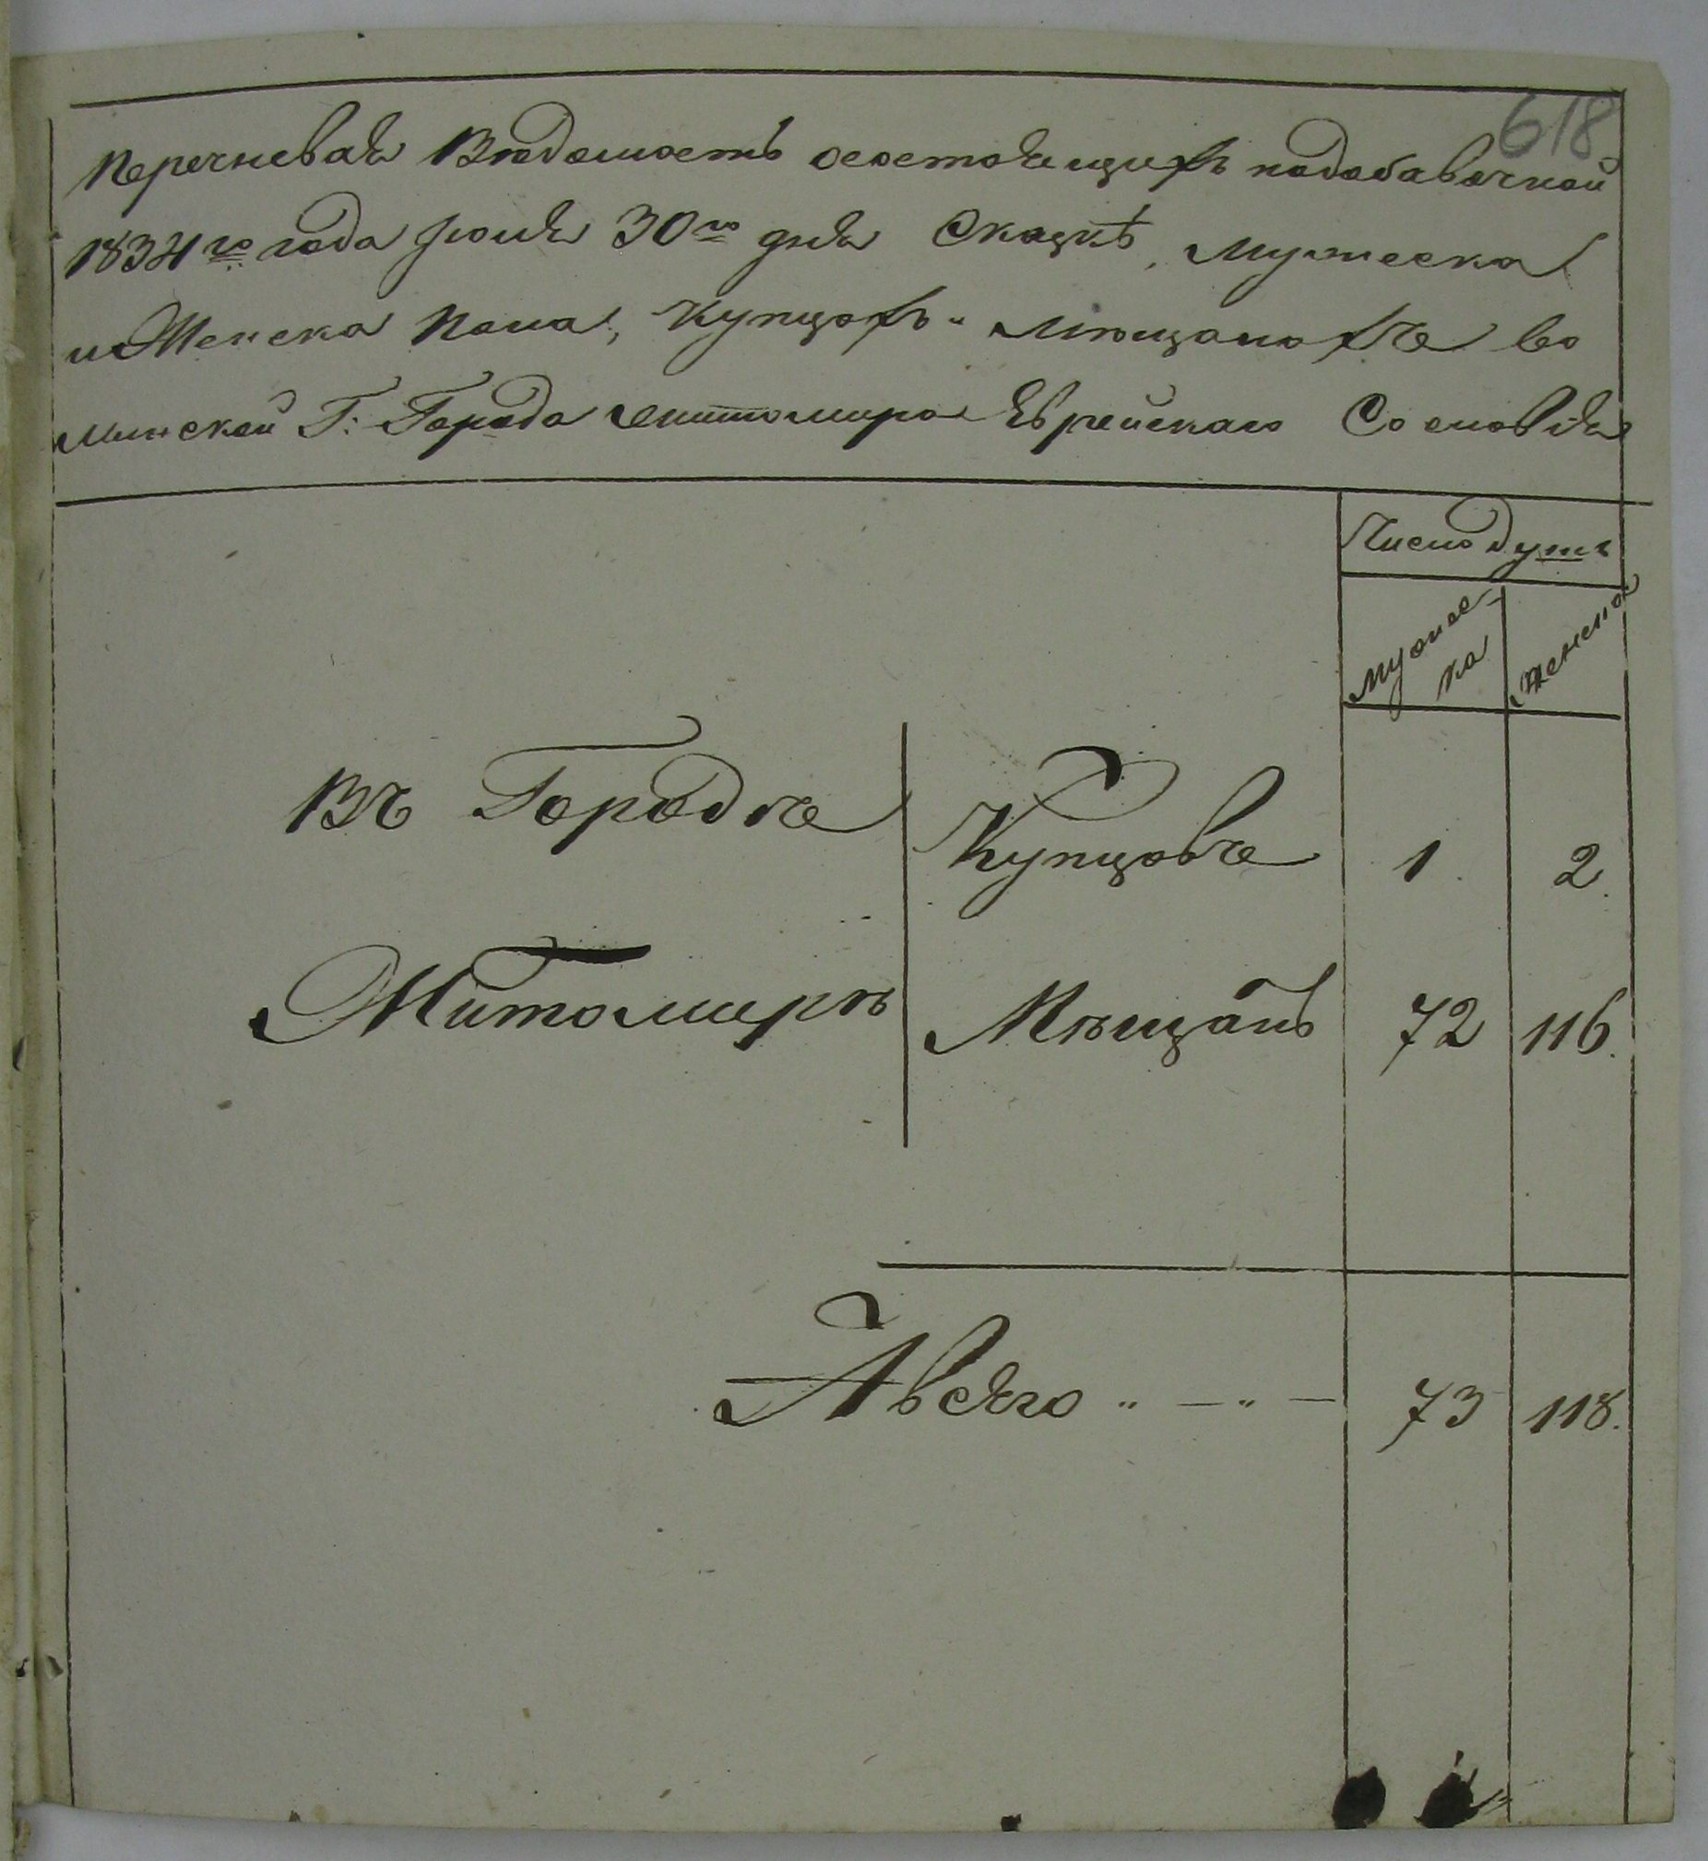 618
Перечневая Вѣдомость осостоящихъ подобавочной
1834го года Іюня 30го дня Сказкѣ, мужеска
и Женска пола, Купцахъ и мѣщанахъ во
линской Г: Города Житомира Еврейскаго Сословія
Число душъ
мужес-
ка
женска
Въ Городѣ
Купцовъ
1
2
Житомирѣ
Мѣщанъ
72
116
Авсего
73
118